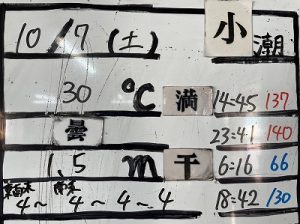 10/7(土) 小潮
30℃ 満 14=45 137
曇 23=41 140
1.5m 干 6=16 66
4〜 4〜4〜4 18=42 130